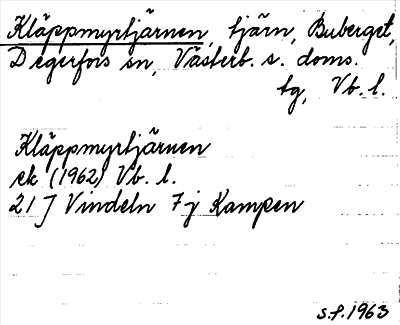 Kläppmyrtjärnen, tjärn, Buberget,
Degerfors sn, Västerb. s. doms.
tg, Vb. l.
Kläppmyrtjärnen
ek (1962) Vb. l.
21 J Vindeln 7 j Kampen
s.f. 1963